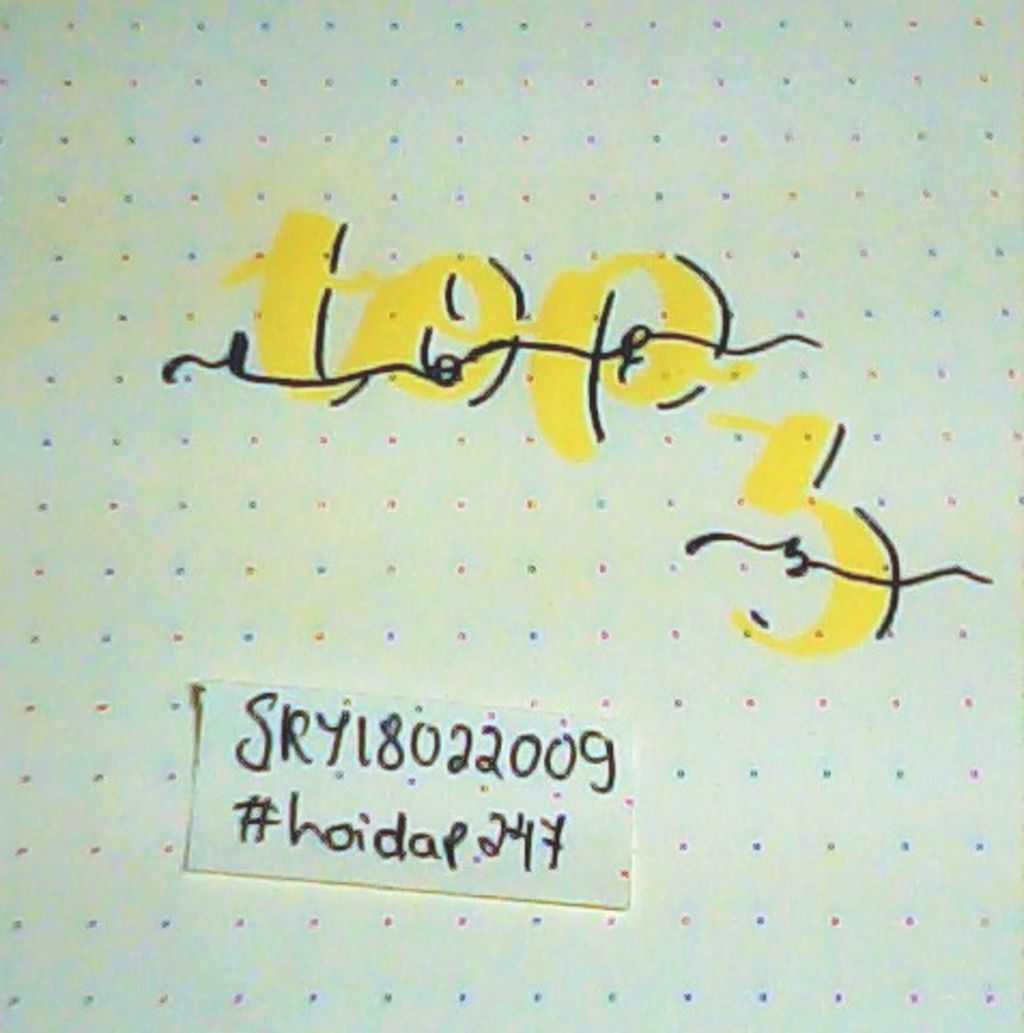 top
3
SRY18022009
#hoidap247